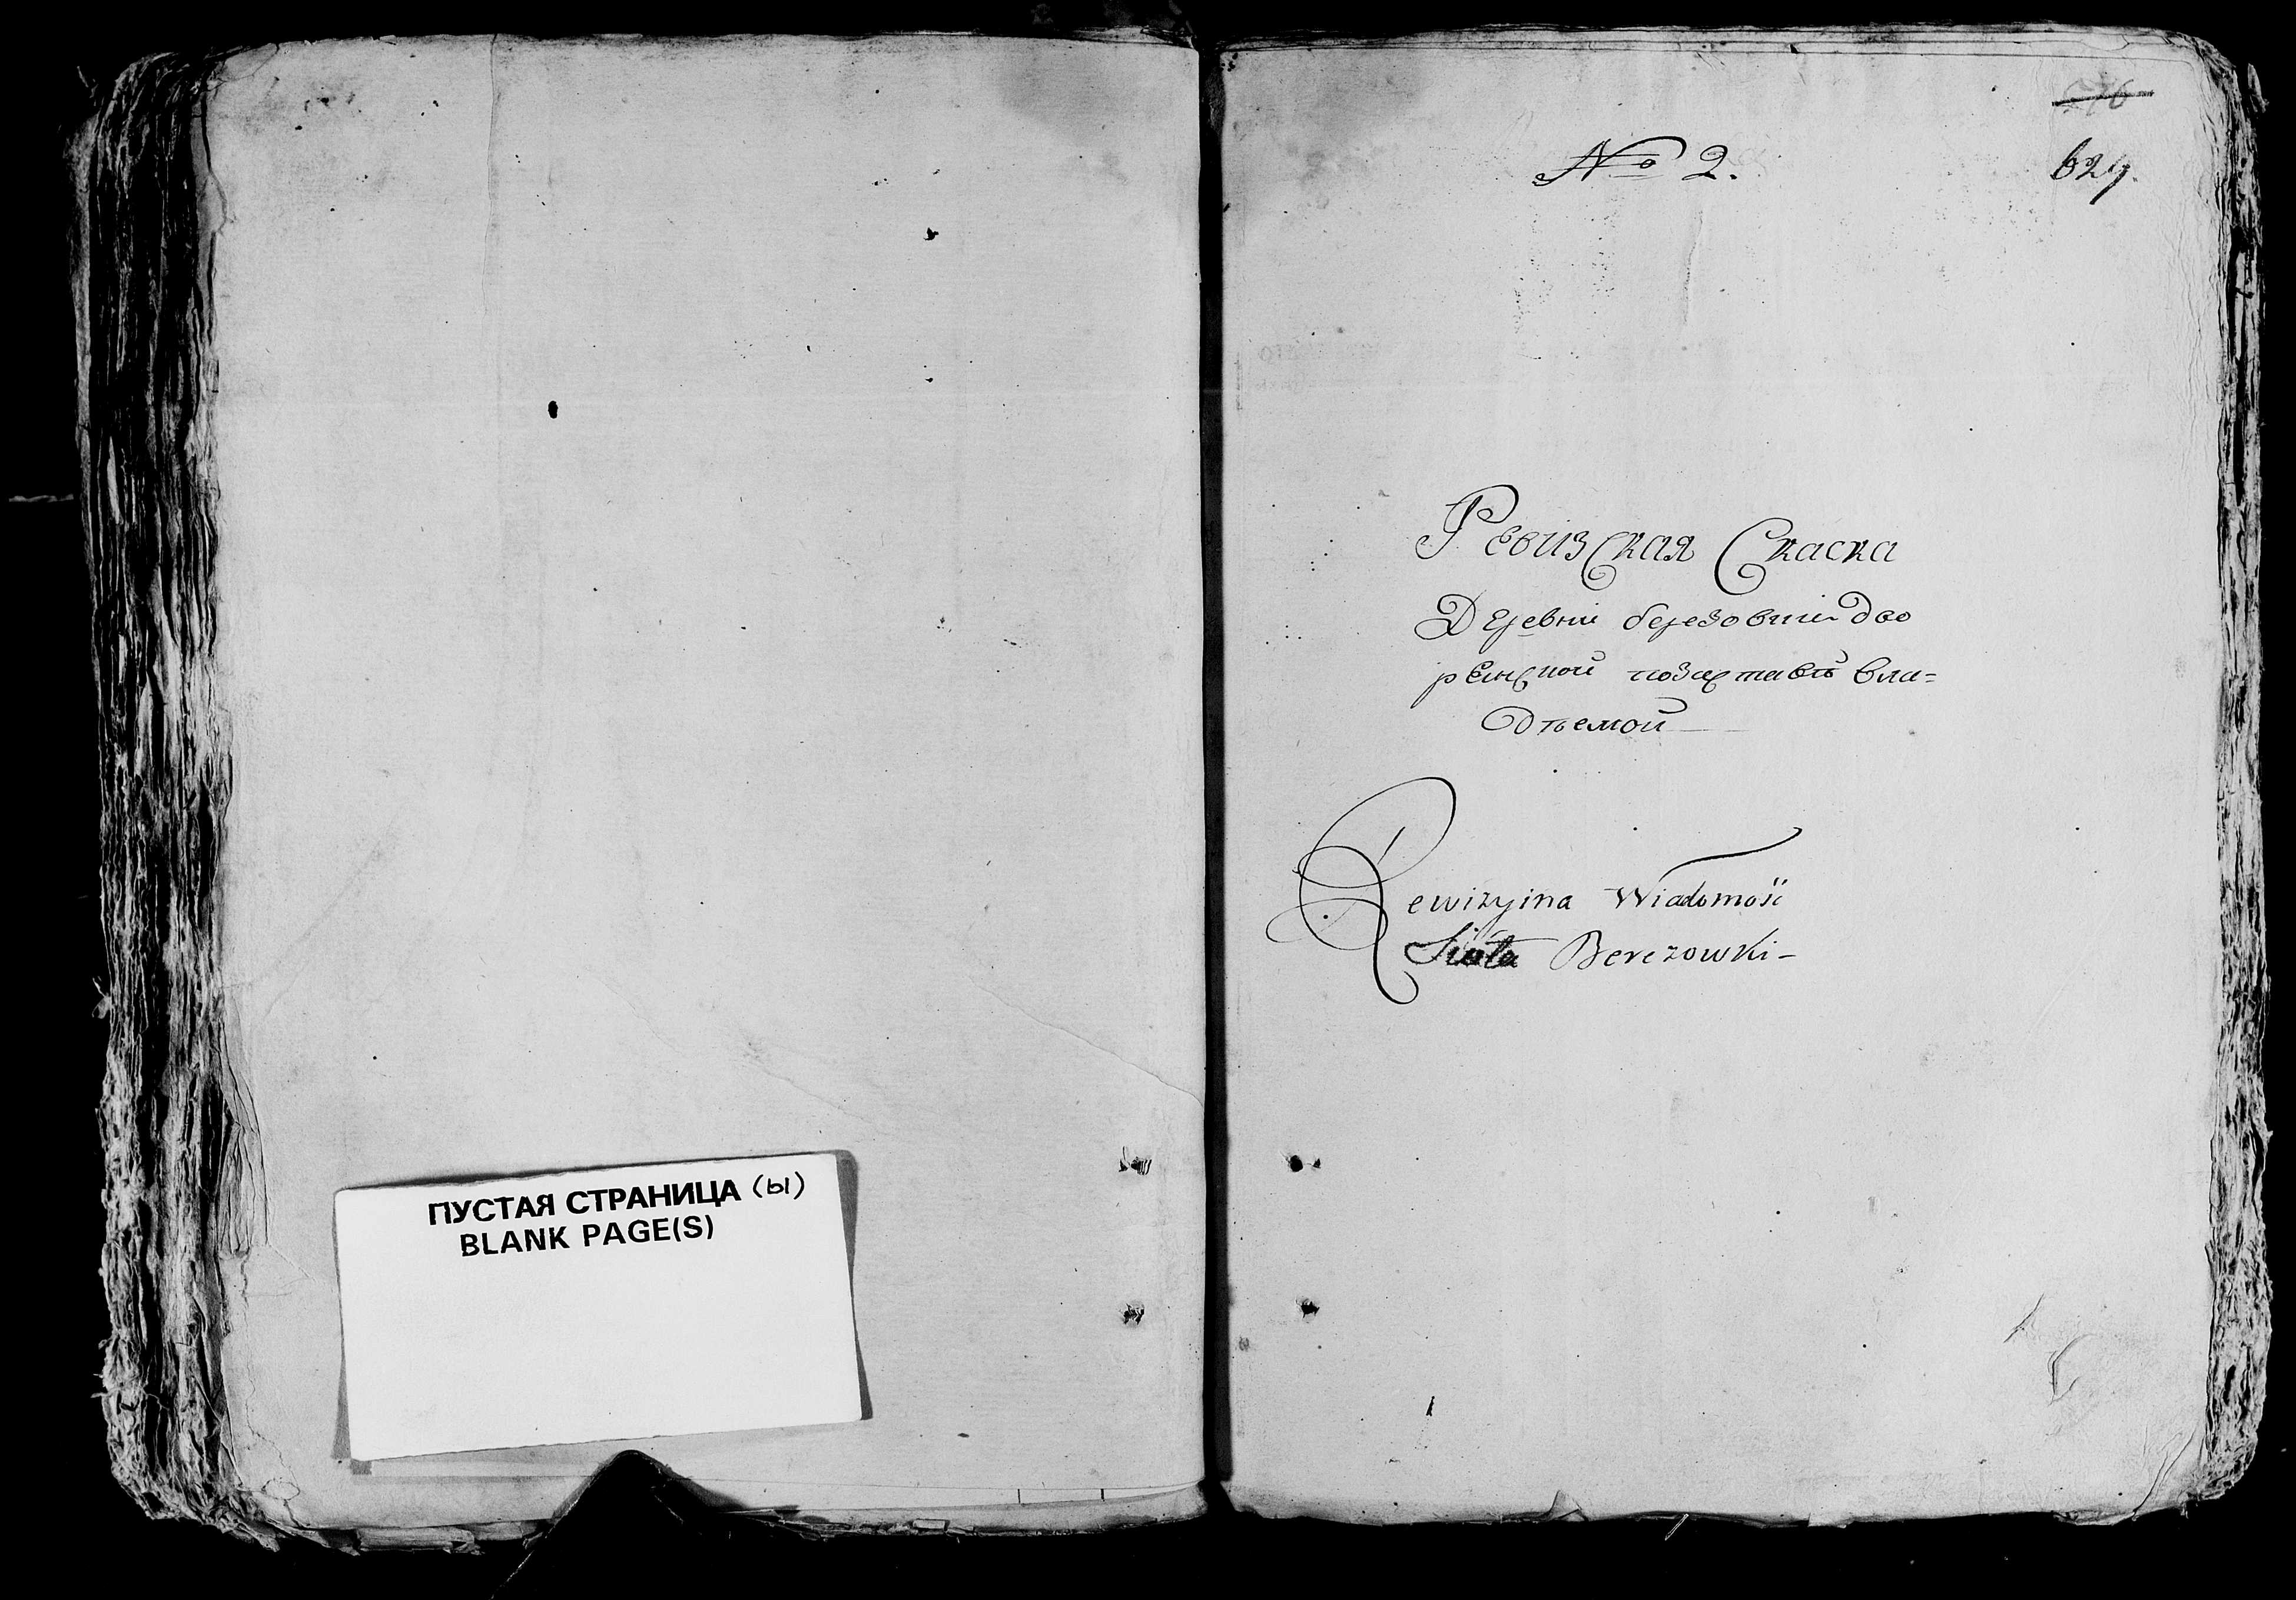 ПУСТАЯ СТРАНИЦА (Ы)
BLANK PAGE(S)
№ 2.
629.
Ревизская Скаска
Деревни березовки дво
ренской позаставъ вла=
дѣемой
Rewizyina Wiadomość
Sioła Berezowki -